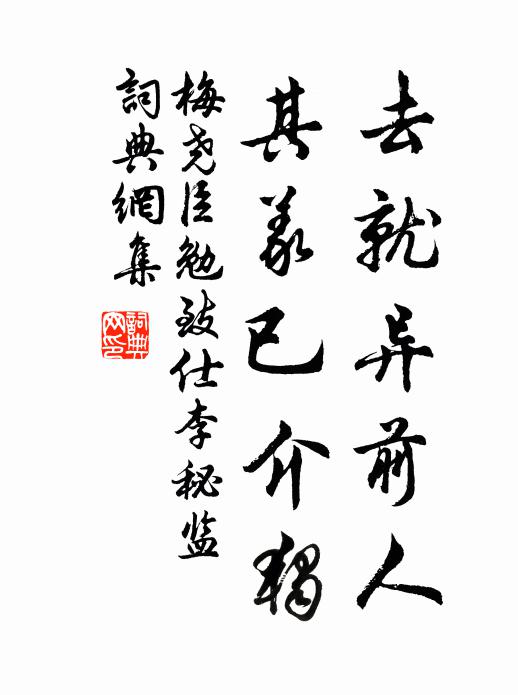 去就异前人
其义已介独
梅尧臣勉致仕李秘监
詞典網集
詞典网印